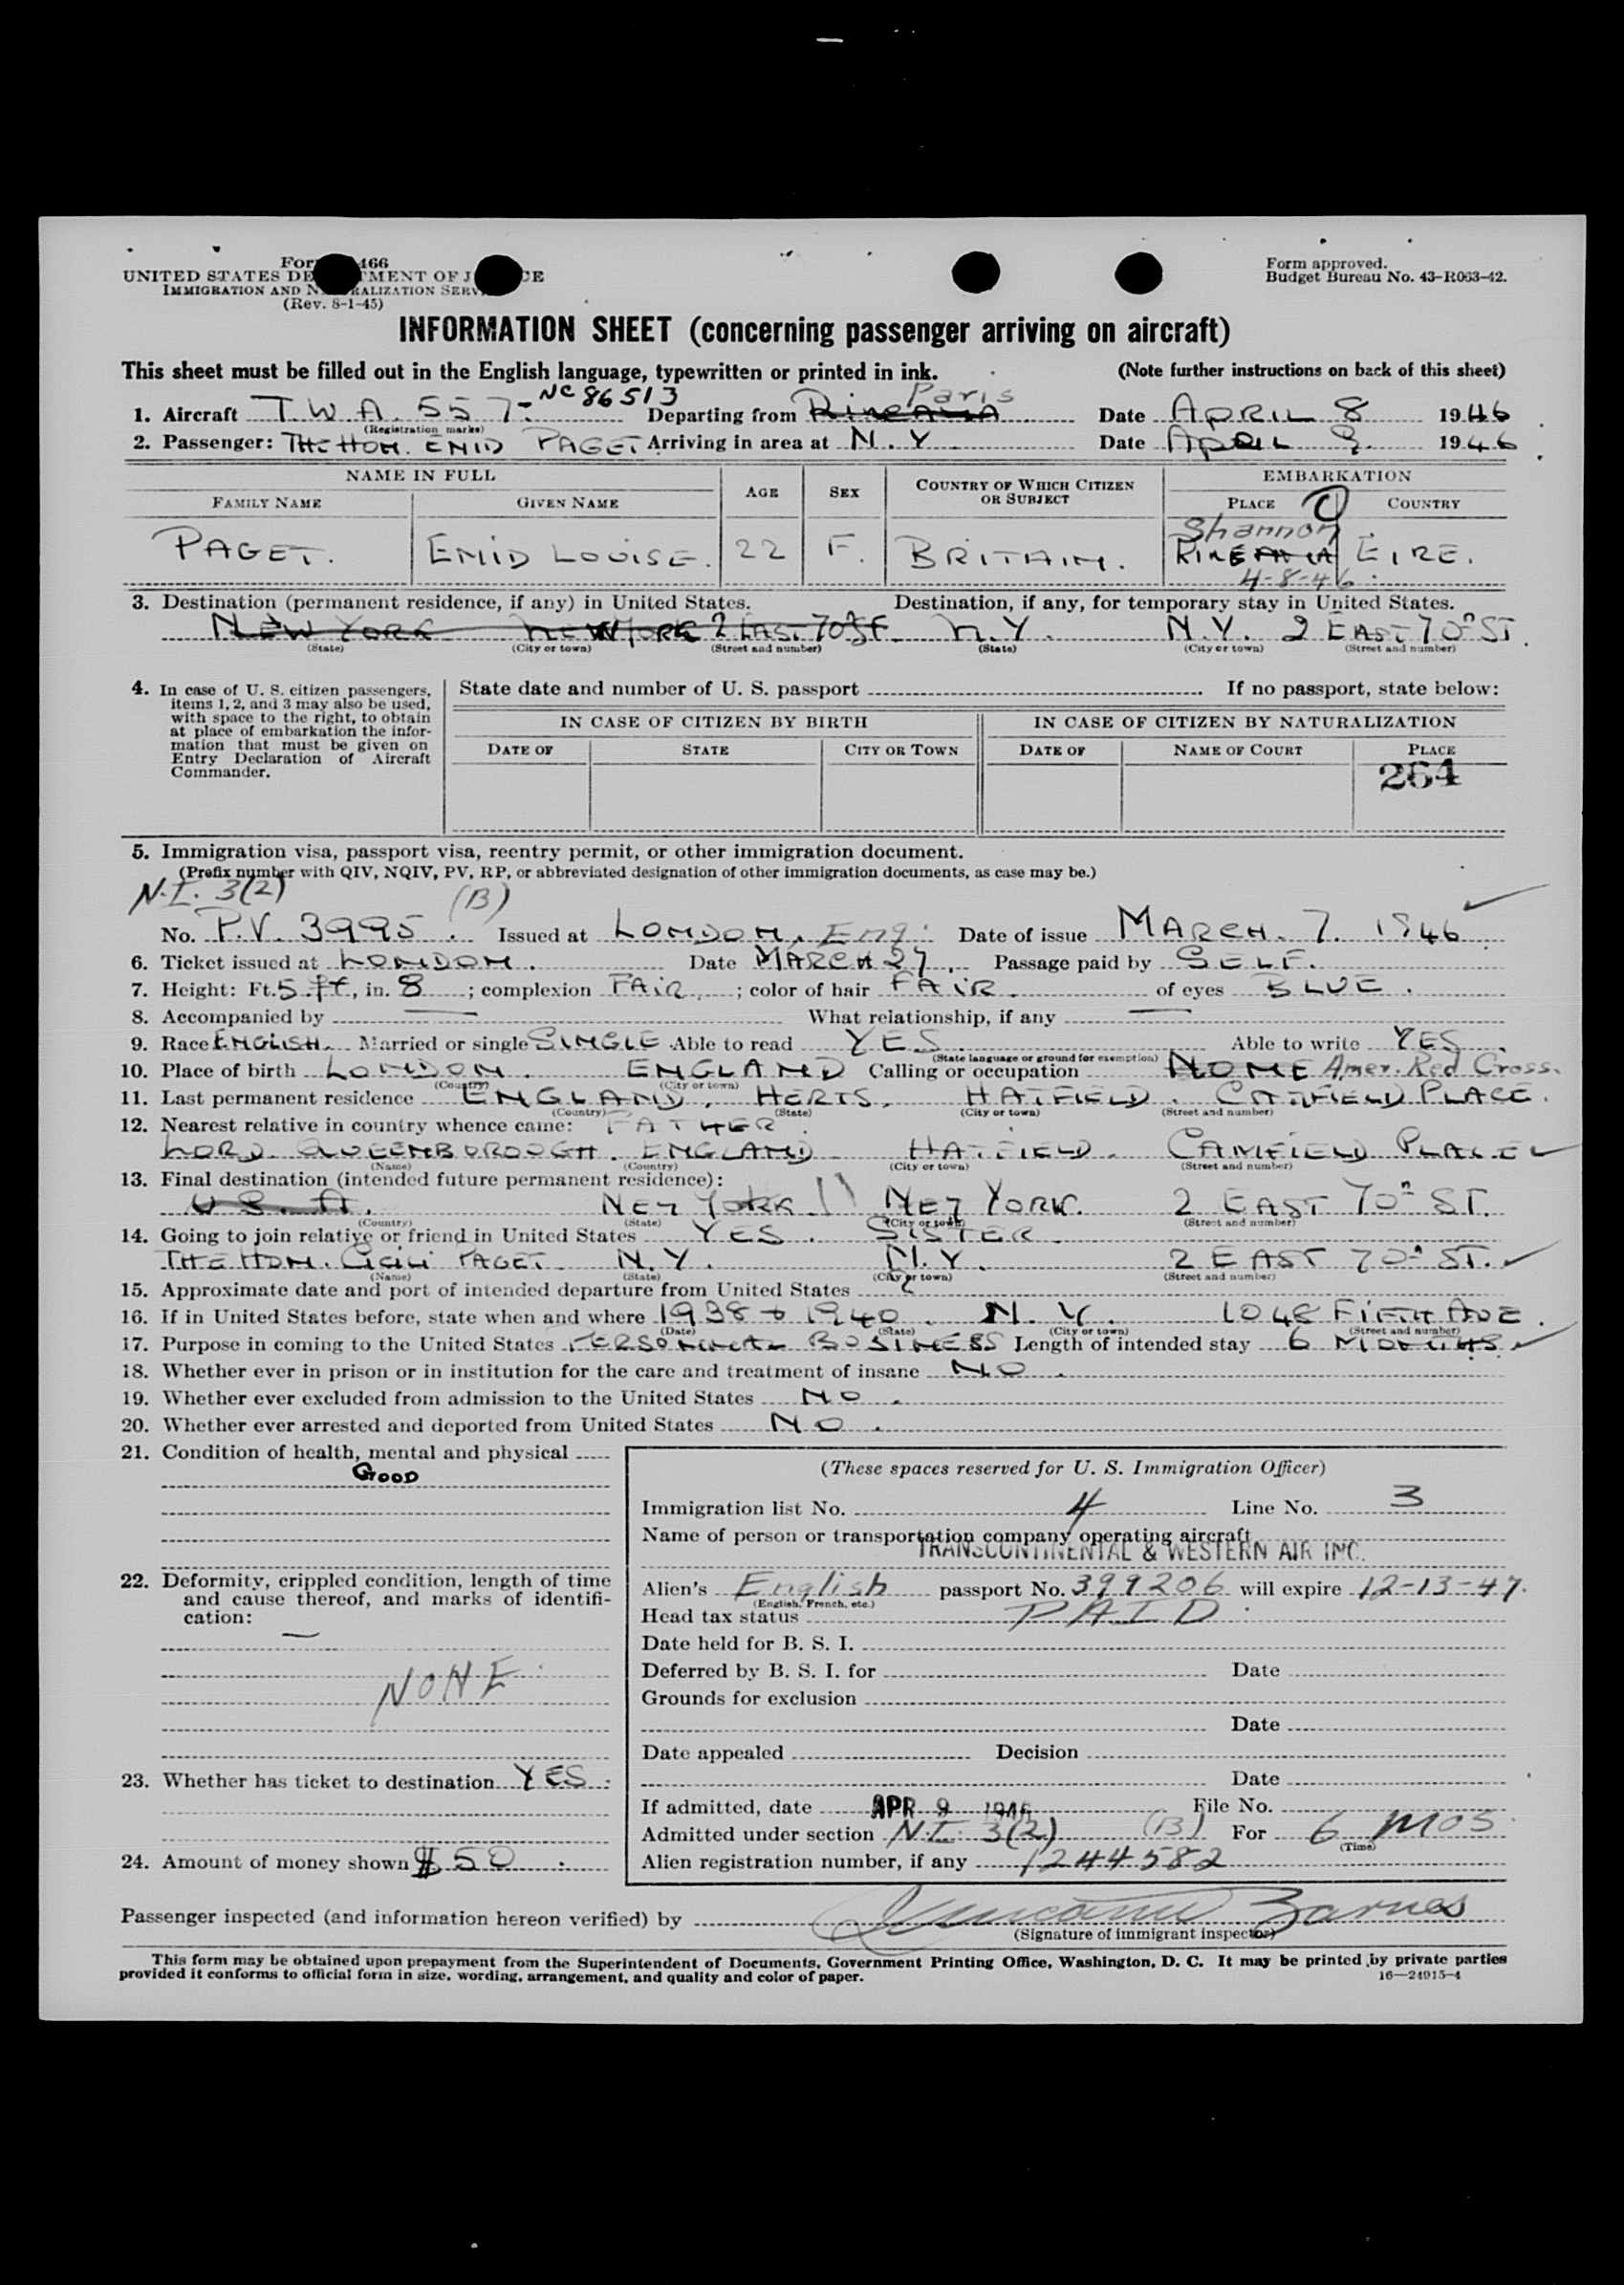 Form 466
UNITED STATES DE TMENT OF J CE
IMMIGRATION AND N RALIZATION SERV
(Rev. 8-1-45)
Form approved.
Budget Bureau No. 43-R063-42.
INFORMATION SHEET (concerning passenger arriving on aircraft)
This sheet must be filled out in the English language, typewritten or printed in ink. (Note further instructions on back of this sheet)
1. Aircraft T.W.A. 557- NC 86513 Departing from Rineanna Paris Date APRIL 8 1946
(Registration marks)
2. Passenger: THE HON. ENID PAGET Arriving in area at N.Y. Date April 9 1946
NAME IN FULL AGE SEX COUNTRY OF WHICH CITIZEN OR SUBJECT EMBARKATION
FAMILY NAME GIVEN NAME PLACE COUNTRY
Shannon
PAGET. ENID LOUISE. 22 F. BRITAIN. RINEANNA EIRE.
4-8-46
3. Destination (permanent residence, if any) in United States. Destination, if any, for temporary stay in United States.
NEW YORK NEW YORK 2 EAST 70 ST. N.Y. N.Y. 2 EAST 70 ST.
(State) (City or town) (Street and number) (State) (City or town) (Street and number)
4. In case of U. S. citizen passengers, items 1, 2, and 3 may also be used, with space to the right, to obtain at place of embarkation the information that must be given on Entry Declaration of Aircraft Commander.
State date and number of U. S. passport If no passport, state below:
IN CASE OF CITIZEN BY BIRTH IN CASE OF CITIZEN BY NATURALIZATION
DATE OF STATE CITY OR TOWN DATE OF NAME OF COURT PLACE
264
5. Immigration visa, passport visa, reentry permit, or other immigration document.
(Prefix number with QIV, NQIV, PV, RP, or abbreviated designation of other immigration documents, as case may be.)
N.I. 3(2) (B)
No. P.V. 3995. Issued at LONDON, Eng. Date of issue MARCH. 7. 1946
6. Ticket issued at LONDON. Date MARCH 27. Passage paid by SELF.
7. Height: Ft. 5 ft, in. 8; complexion FAIR; color of hair FAIR. of eyes BLUE.
8. Accompanied by — What relationship, if any —
9. Race ENGLISH. Married or single SINGLE Able to read YES. Able to write YES.
(State language or ground for exemption)
10. Place of birth LONDON. ENGLAND Calling or occupation NONE Amer. Red Cross.
(Country) (City or town)
11. Last permanent residence ENGLAND, HERTS, HATFIELD. CAMFIELD PLACE.
(Country) (State) (City or town) (Street and number)
12. Nearest relative in country whence came: FATHER
LORD QUEENBOROUGH. ENGLAND HATFIELD. CAMFIELD PLACE
(Name) (Country) (City or town) (Street and number)
13. Final destination (intended future permanent residence):
U.S.A. NEW YORK NEW YORK. 2 EAST 70 ST.
(Country) (State) (City or town) (Street and number)
14. Going to join relative or friend in United States YES. SISTER.
THE HON. Cicili PAGET. N.Y. N.Y. 2 EAST 70 ST.
(Name) (State) (City or town) (Street and number)
15. Approximate date and port of intended departure from United States ?
16. If in United States before, state when and where 1938 to 1940. N.Y. 1048 FIFTH AVE.
(Date) (State) (City or town) (Street and number)
17. Purpose in coming to the United States PERSONAL BUSINESS Length of intended stay 6 MONTHS
18. Whether ever in prison or in institution for the care and treatment of insane NO.
19. Whether ever excluded from admission to the United States NO.
20. Whether ever arrested and deported from United States NO.
21. Condition of health, mental and physical
GOOD
22. Deformity, crippled condition, length of time and cause thereof, and marks of identification:
—
NONE
23. Whether has ticket to destination YES.
24. Amount of money shown $50.
(These spaces reserved for U. S. Immigration Officer)
Immigration list No. 4 Line No. 3
Name of person or transportation company operating aircraft
TRANSCONTINENTAL & WESTERN AIR INC.
Alien's English passport No. 399206 will expire 12-13-47.
(English, French, etc.)
Head tax status PAID
Date held for B. S. I.
Deferred by B. S. I. for Date
Grounds for exclusion
Date
Date appealed Decision
Date
If admitted, date APR 9 1946 File No.
Admitted under section N.I. 3(2) (B) For 6 MOS.
(Time)
Alien registration number, if any 1244582
Passenger inspected (and information hereon verified) by Barnes
(Signature of immigrant inspector)
This form may be obtained upon prepayment from the Superintendent of Documents, Government Printing Office, Washington, D. C. It may be printed by private parties
provided it conforms to official form in size, wording, arrangement, and quality and color of paper. 16—24915-4